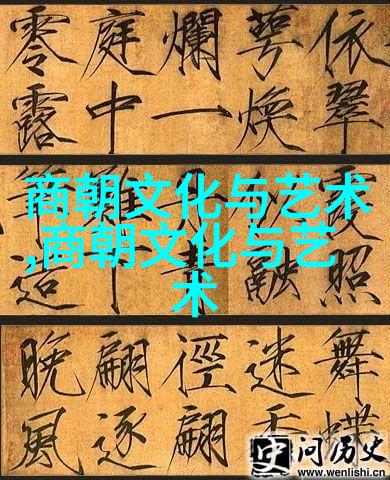 依翠
萼煥
爛一
庭中
零露
商朝文化与艺术
,商朝文化与艺
术
霞照
融
下
筆造
舞蝶
迷香
徑翩
翩逐
晚風
问历史
www.wenlishi.cn